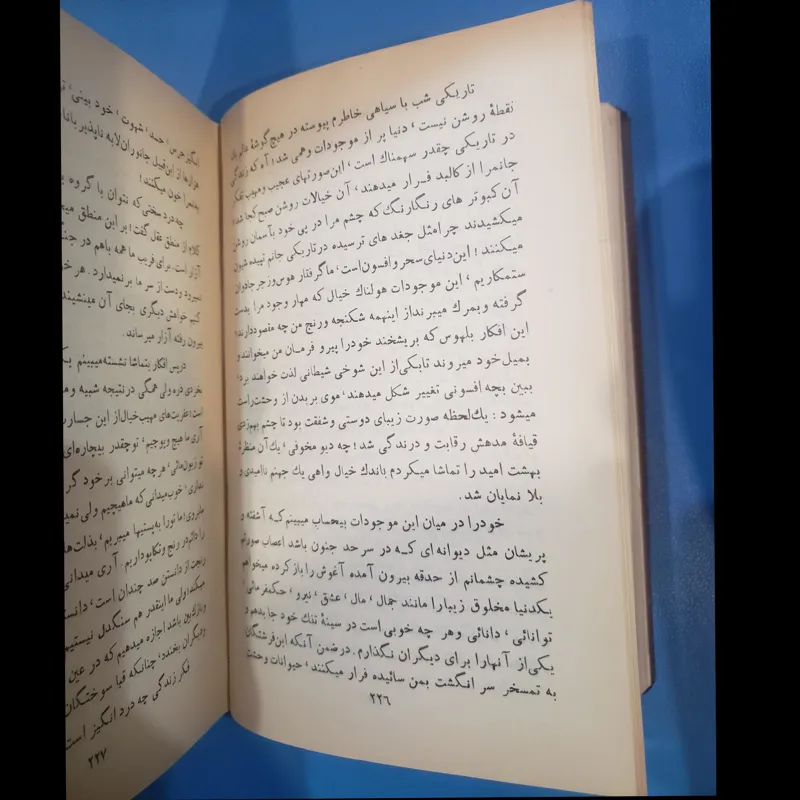 تاریکی شب با سیاهی خاطرم پیوسته در هیچ گوشهٔ عالم یک
نقطهٔ روشن نیست، دنیا پر از موجودات وهمی شد! آه که زندگی
در تاریکی چقدر سهمناك است، این صورتهای عجیب و مهیب
جانمرا از کالبد فرار میدهند، آن خیالات روشن صبح کجا
آن کبوتر های رنگارنگ که چشم مرا در پی خود بآسمان روشن
میکشیدند چرا مثل جغد های ترسیده در تاریکی جانم تپیده شیون
میکنند! این دنیای سحر و افسون است، ما گرفتار هوس و زجر جادوان
ستمکاریم، این موجودات هولناك خیال که مهار وجود مرا بدست
گرفته و بمرك میبرند از اینهمه شکنجه ورنج من چه مقصود دارند؛
این افکار بلهوس که بریشخند خودرا پیرو فرمان من میخوانند و
بمیل خود میروند تا یکی از این شوخی شیطانی لذت خواهند برد؛
ببین بچه افسونی تغییر شکل میدهند، موی بر بدن از وحشت راست
میشود: یك لحظه صورت زیبای دوستی و شفقت بود تا چشم بهم زدی
قیافهٔ مدهش رقابت و درندگی شد! چه دیو مخوفی، یك آن منظرهٔ
بهشت امید را تماشا میکردم باندك خیال واهی یك جهنم ناامیدی و
بلا نمایان شد.
خودرا در میان این موجودات بیحساب میبینم که آشفته و
پریشان مثل دیوانه ای که در سر حد جنون باشد اعصاب صورتم
کشیده چشمانم از حدقه بیرون آمده آغوش را باز کرده میخواهم
یکدنیا مخلوق زیبارا مانند جمال، مال، عشق، نیرو، حکمفرمائی،
توانائی، دانائی وهر چه خوبی است در سینهٔ تنك خود جا بدهم و
یکی از آنهارا برای دیگران نگذارم. در ضمن آنکه این فرشتگان
به تمسخر سر انگشت بمن سائیده فرار میکنند، حیوانات وحشت
۲۲۶
انگیز حرس، حسد، شهوت، خود بینی،
هزارها از این قبیل جانوران لابه ناپذیر
پدنمرا خون میکنند!
چه درد سختی که نتوان با گروه
کلام از منطق عقل گفت! بر این منطق
آزار است. برای فریب ما همه باهم در
نمیرود ودست از سر ما برنمیدارد. هر
کنیم خواهش دیگری بجای آن مینشیند
بیرون رفته آزار میرساند.
درپس افکار بتماشا نشسته میبینم
بخردی ذره ولی همگی در نتیجه شبیه و
است؛ عفریت های مهیب خیال از این جسارت
آری ما هیچ و پوچیم، تو چقدر بیچاره ای
تو زبون مائی، هر چه میتوانی بر خود
نداری، خوب میدانی که ما هیچیم ولی
ما بروی؛ اما تورا به پستیها میبریم، بذلت
را دائم در رنج وتکاپو داریم. آری میدانی
رنجت از دانستن صد چندان است،
میکند؛ ولی ما اینقدر هم سنگدل نیستیم
باشد اجازه میدهیم که در عین
دیگران بخندد، چنانکه قبا سوختگان
فکر زندگی چه درد انگیز است
۲۲۷